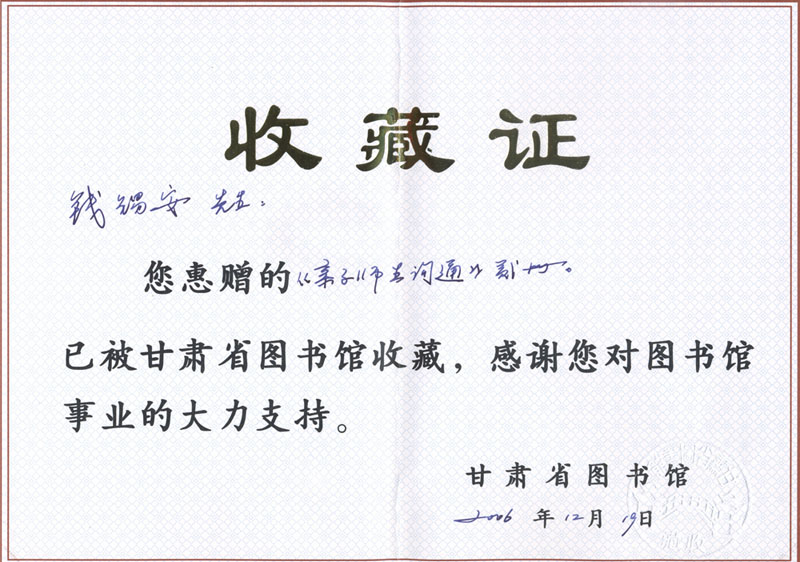 收藏证
钱锡安 先生：
您惠赠的《亲子师生沟通》贰册。
已被甘肃省图书馆收藏，感谢您对图书馆
事业的大力支持。
甘肃省图书馆
2006 年 12 月 19 日